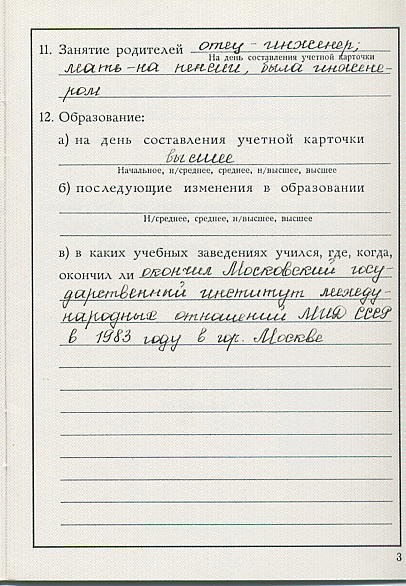 11. Занятие родителей отец - инженер;
На день составления учетной карточки
мать - на пенсии, была инжене-
ром
12. Образование:
а) на день составления учетной карточки
высшее
Начальное, н/среднее, среднее, н/высшее, высшее
б) последующие изменения в образовании
Н/среднее, среднее, н/высшее, высшее
в) в каких учебных заведениях учился, где, когда,
окончил ли окончил Московский госу-
дарственный институт между-
народных отношений МИД СССР
в 1983 году в гор. Москве
3